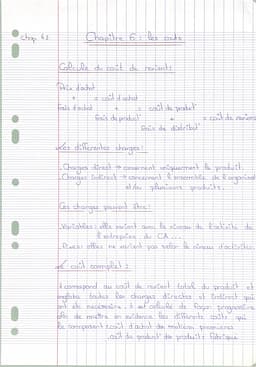 chap 6
Chapitre 6 : les couts
Calcule du coût de revient :
Prix d'achat
+ = coût d'achat
frais d'achat + = coût de product°
frais de product° + = coût de revient
frais de distribut°
Les différentes charges :
. Charges direct → concernent uniquement le produit.
. Charges indirect → concernent l'ensemble de l'organisat°
et/ou plusieurs produits.
Ces charges peuvent être :
. Variables : elles varient avec le niveau de l'activité de
l'entreprise du CA...
. Fixes : elles ne varient pas selon le niveau d'activités.
Le coût complet :
Il correspond au coût de revient total du produit et
englobe toutes les charges directes et indirect qui
ont été nécessaire. Il est calculé de façon progressive
afin de mettre en évidence les différents coûts qui
le composent : coût d'achat des matières premières
. coût de product° des produits fabriqué